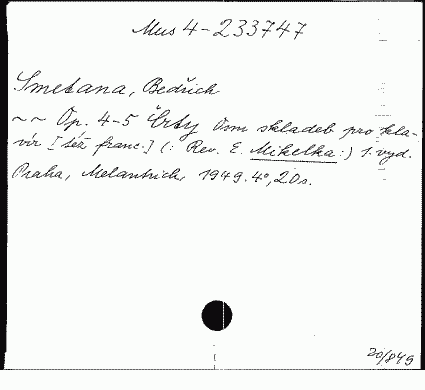 Mus 4-233747
Smetana, Bedřich
~~ Op. 4-5 Črty Osm skladeb pro kla-
vír [též franc.] (: Rev. E. Mikelka :) 1. vyd.
Praha, Melantrich, 1949. 4°, 20 s.
20/849